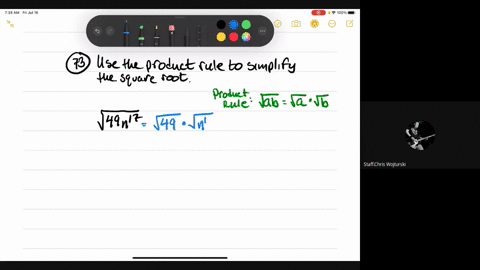 7:38 AM Fri Jul 16
100%
73 Use the product rule to simplify
the square root.
Product
Rule: √ab = √a • √b
√49n¹⁷ = √49 • √n¹
Staff.Chris Wojturski